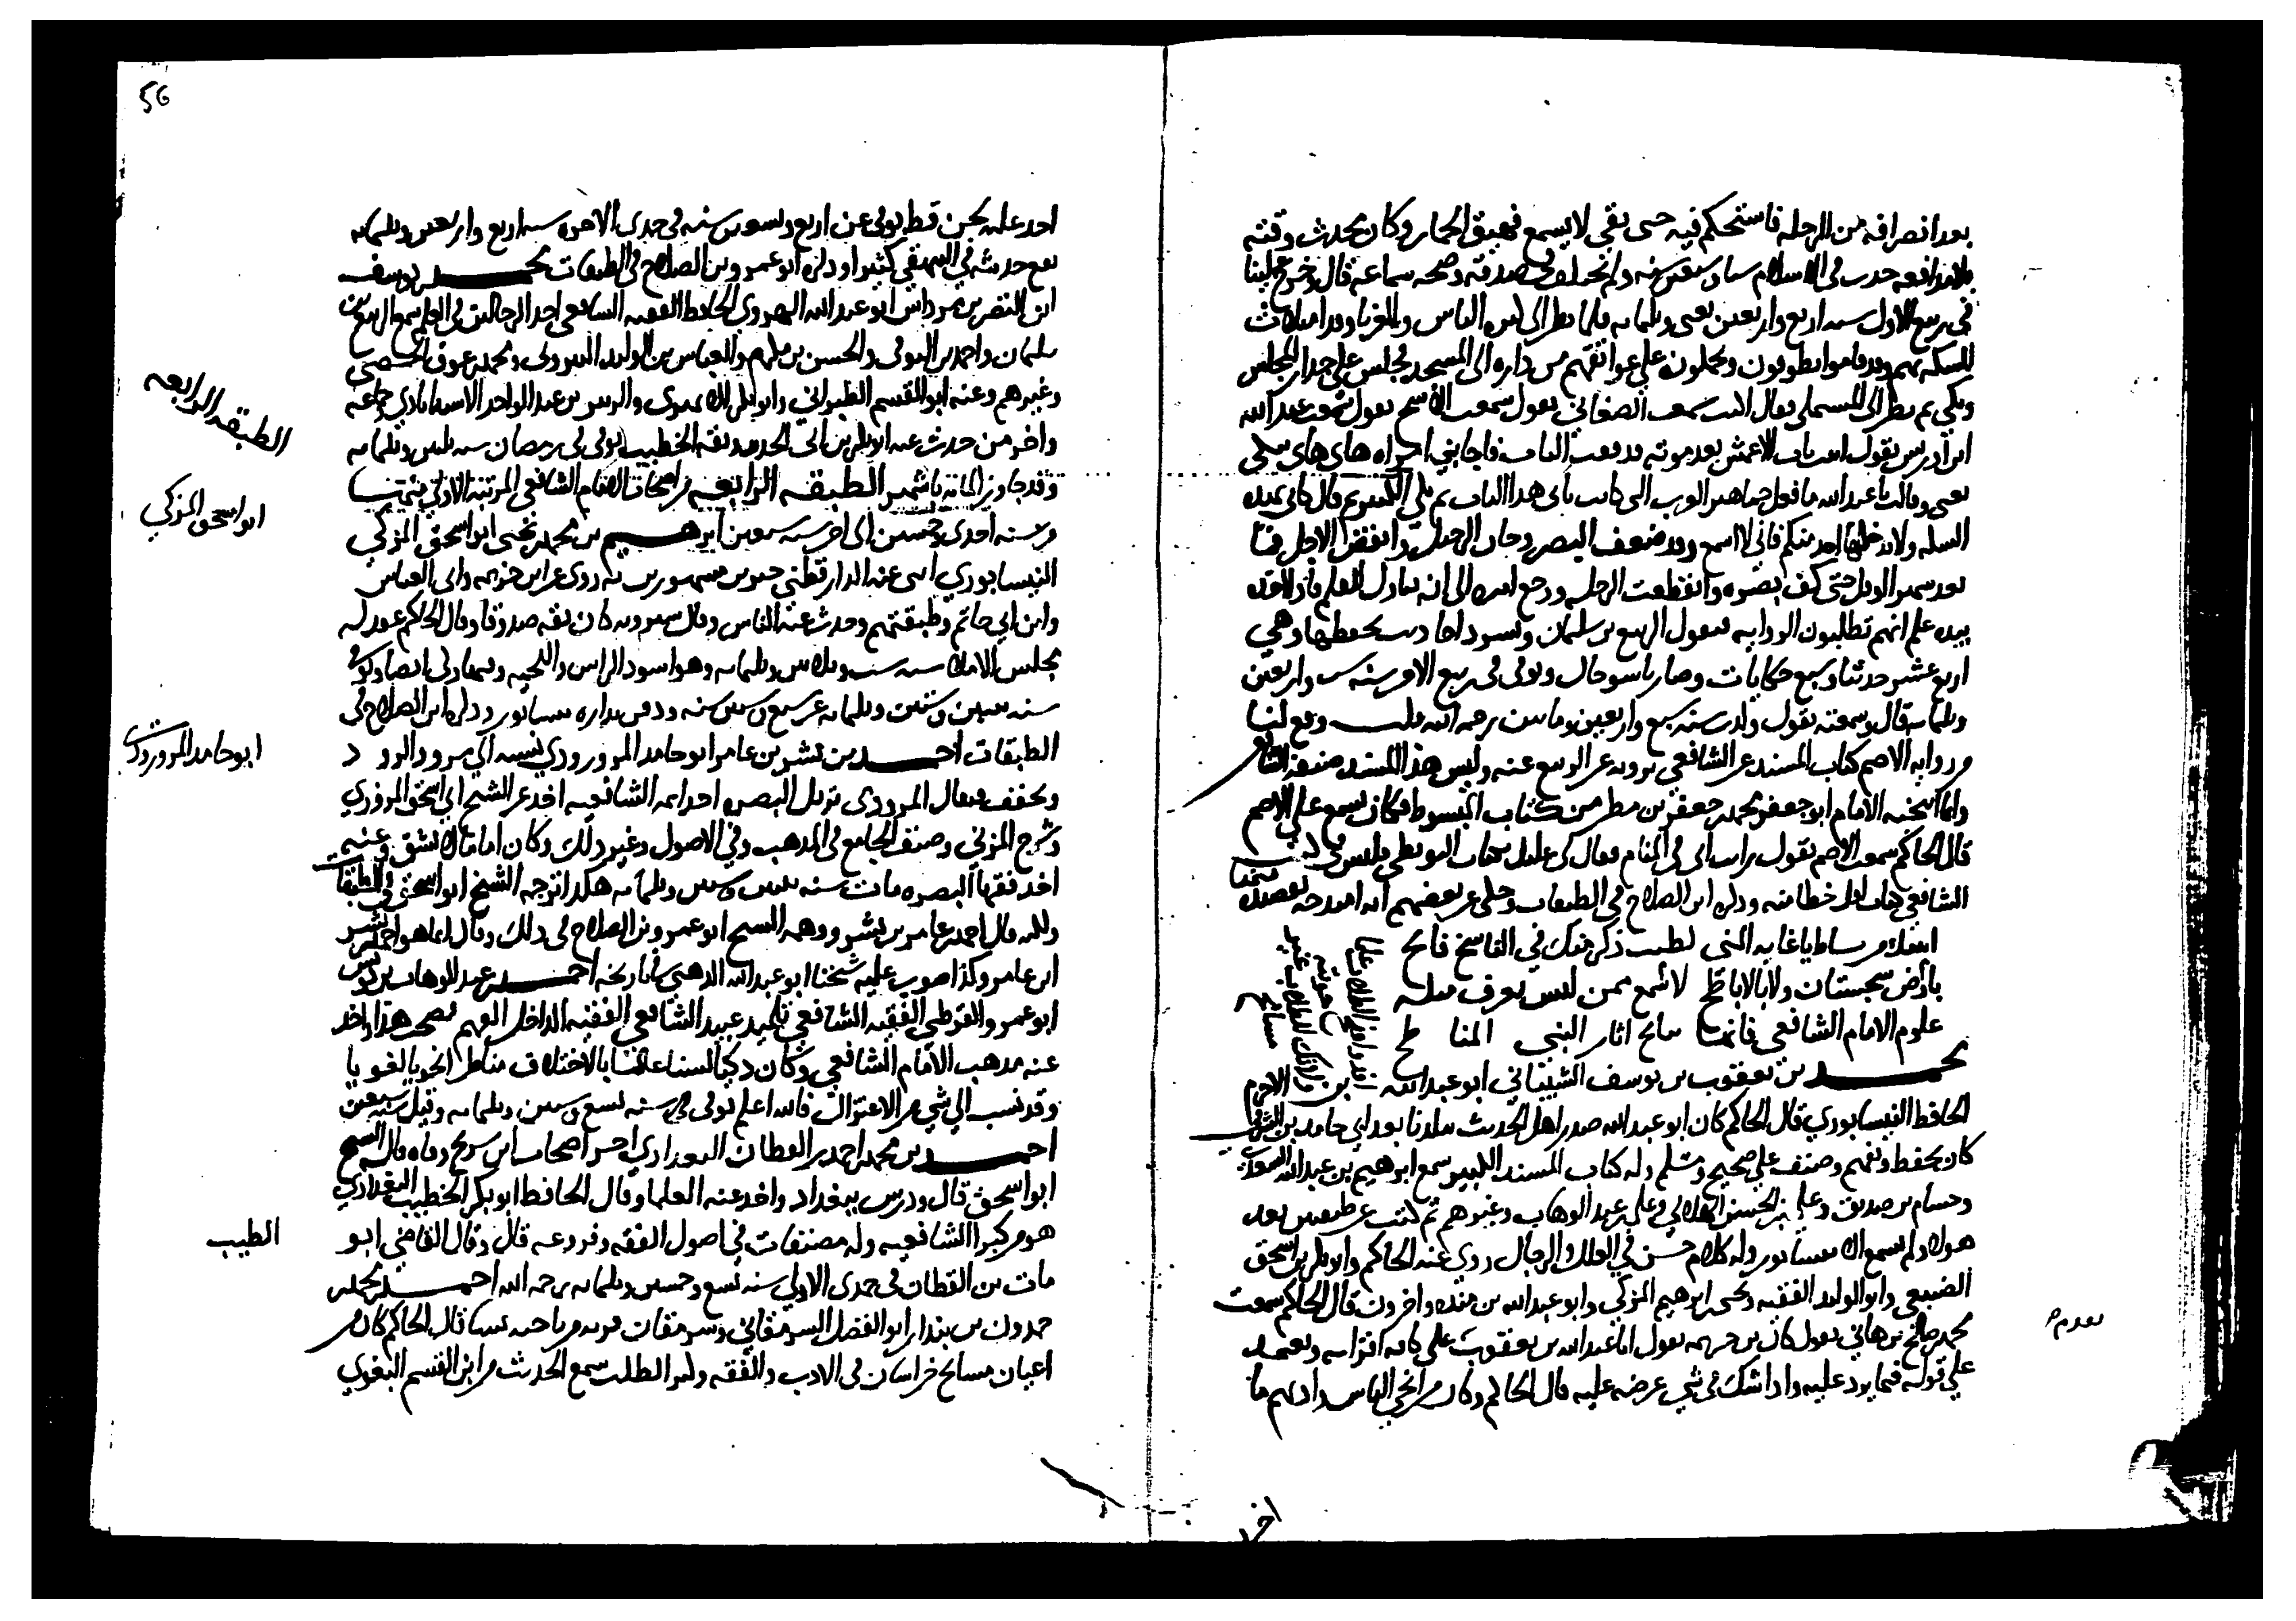 بعد انصرافه من الرحلة فاستحكم فيه حتى بقي لا يسمع نهيق الحمار وكان يحدث وقته
بلا مدافعة حدث في الاسلام ستا وسبعين سنة ولم يختلف في صدقه وصحة سماعه قال وخرج علينا
في ربيع الاول سنة اربع واربعين يعني وثلثمائة فلما نظر الى كثرة الناس والغربا وقد امتلات
السكة بهم وقد قاموا يطوفون ويحملونه على عواتقهم من داره الى المسجد فجلس على جدار المجلس
وبكى ثم نظر الى المستملي فقال اكتب سمعت الصغاني يقول سمعت الاشج يقول سمعت عبد الله
ابن ادريس يقول اتيت باب الاعمش بعد موته فدققت الباب فاجابتني امراة هاي هاي تبكي
يعني وقالت يا عبد الله ما فعل جماهير العرب التي كانت تاتي هذا الباب ثم بكى الكثير ثم قال كاني بهذه
السكة ولا يدخلها احد منكم فاني لا اسمع وقد ضعف البصر وحان الرحيل وانقضى الاجل فما
بعد شهر او اقل حتى كف بصره وانقطعت الرحلة ورجع امره الى ان يناول القلم فاذا اخذه
بيده علم انهم يطلبون الرواية فيقول الربيع بن سليمان ويسرد احاديث يحفظها وهي
اربع عشر حديثا وسبع حكايات وصار باسوا حال وتوفي في ربيع الاخر سنة ست واربعين
وثلثمائة قال وسمعته يقول ولدت سنة سبع واربعين ومائتين رحمه الله قلت وقع لنا
من رواية الاصم كتاب المسند عن الشافعي يرويه عن الربيع عنه وليس هذا المسند صنفه الشافعي
وانما انتخبه الامام ابو جعفر محمد بن جعفر بن مطر من كتاب المبسوط فكان يسمع على الاصم
قال الحاكم سمعت الاصم يقول رايت ابي في المنام فقال لي عليك بكتاب البويطي فليس في كتب
الشافعي كتاب اقل خطا منه وذكره ابن الصلاح في الطبقات وحكى عن بعضهم انه امتدحه بقصيدة منها
باارض سجستان ولا بالاباطح لاسمع ممن ليس يعرف مثله
علوم الامام الشافعي فانها
محمد بن يعقوب بن يوسف الشيباني ابو عبد الله بن الاخرم
الحافظ النيسابوري قال الحاكم كان ابو عبد الله صدر اهل الحديث ببلدنا بعد ابي حامد بن الشرقي
كان يحفظ ويفهم وصنف على صحيح مسلم وله كتاب المسند الكبير سمع ابرهيم بن عبد الله السعدي
وحسام بن صديق وعلي بن الحسن الهلالي وعلي بن عبد الوهاب وغيرهم ثم كتب عن طبقتين بعد
هولاء ولم يسمع الا بنيسابور وله كلام حسن في العلل والرجال روى عنه الحاكم وابو بكر بن اسحق
الضبعي وابو الوليد الفقيه ويحيى بن ابرهيم المزكي وابو عبد الله بن منده واخرون قال الحاكم سمعت
محمد بن صالح بن هاني يقول كان ابن خزيمة يقدم ابا عبد الله بن يعقوب على كافة اقرانه ويعتمد
على قوله فيما يرد عليه واذا شك في شي عرضه عليه قال الحاكم وكان من انحى الناس وادبهم ما
56
احد عليه لحن قط توفي عن اربع وتسعين سنة في جمدى الاخرة سنة اربع واربعين وثلثمائة
يقع حديثه في البيهقي كثيرا وذكره ابو عمرو بن الصلاح في الطبقات محمد بن يوسف
ابن النضر بن مرداس ابو عبد الله الهروي الحافظ الفقيه الشافعي احد الرحالين في العلم سمع الربيع بن
سليمان واحمد بن البرقي والحسن بن مكرم والعباس بن الوليد البيروتي ومحمد بن عوف الحمصي
وغيرهم وعنه ابو القسم الطبراني وابو بكر الابهري والزبير بن عبد الواحد الاسداباذي وجماعة
واخر من حدث عنه ابو بكر بن ابي الحديد وثقه الخطيب توفي في رمضان سنة ثلثين وثلثمائة
وقد جاوز المائة باشهر الطبقة الرابعة من اصحاب الامام الشافعي المرتبة الاولى منها
من سنة احدى وخمسين الى اخر سنة سبعين ابرهيم بن محمد بن يحيى ابو اسحق المزكي
وابن ابي حاتم وطبقتهم وحدث عنه الناس وقال كان ثقة صدوقا وقال الحاكم عقد له
مجلس الاملاء سنة ست وثلثين وثلثمائة وهو اسود الراس واللحية
سنة اثنين وستين وثلثمائة عن سبع وستين سنة ودفن بداره بنيسابور وذكره ابن الصلاح في
الطبقات احمد بن بشر بن عامر ابو حامد المروروذي نسبة الى مرو الرود
ويخفف فيقال المروذي نزيل البصرة احد ائمة الشافعية اخذ عن الشيخ ابي اسحق المروزي
وشرح المزني وصنف الجامع في المذهب وفي الاصول وغير ذلك وكان اماما لا يشق وعنه
اخذ فقهاء البصرة مات سنة اثنين وستين وثلثمائة هكذا ترجمه الشيخ ابو اسحق في الطبقات
ولكنه قال احمد بن عامر بن بشر ووهمه الشيخ ابو عمرو بن الصلاح في ذلك وقال انما هو احمد بن بشر
ابن عامر وكذا صوب عليه شيخنا ابو عبد الله الذهبي في تاريخه احمد بن عبد الوهاب بن يونس
ابو عمر القرطبي الفقيه الشافعي تلميذ عبيد الشافعي الفقيه الداخل اليهم صحب هذا واخذ
عنه مذهب الامام الشافعي وكان ذكيا لسنا عالما بالاختلاف مناظر انحويا لغويا
وقد نسب الى شي من الاعتزال فالله اعلم توفي في سنة تسع وستين وثلثمائة وقيل سنة سبعين
احمد بن محمد بن احمد بن القطان البغدادي اخر اصحاب ابن سريج وفاة قال الشيخ
ابو اسحق قال ودرس ببغداد واخذ عنه العلما وقال الحافظ ابو بكر الخطيب البغدادي
هو من كبرا الشافعية وله مصنفات في اصول الفقه وفروعه قال وقال القاضي ابو
مات بن القطان في جمدى الاولى سنة تسع وخمسين وثلثمائة رحمه الله احمد بن محمد بن
حمدون بن بندار ابو الفضل الشرمقاني وشرمقان قرية من ناحية نسا قال الحاكم كان من
اعيان مشايخ خراسان في الادب والفقه وكثر الطلب سمع الحديث من ابن القسم البغوي
الطبقة الرابعة
ابو اسحق المزكي
ابو حامد المروروذي
الطيب